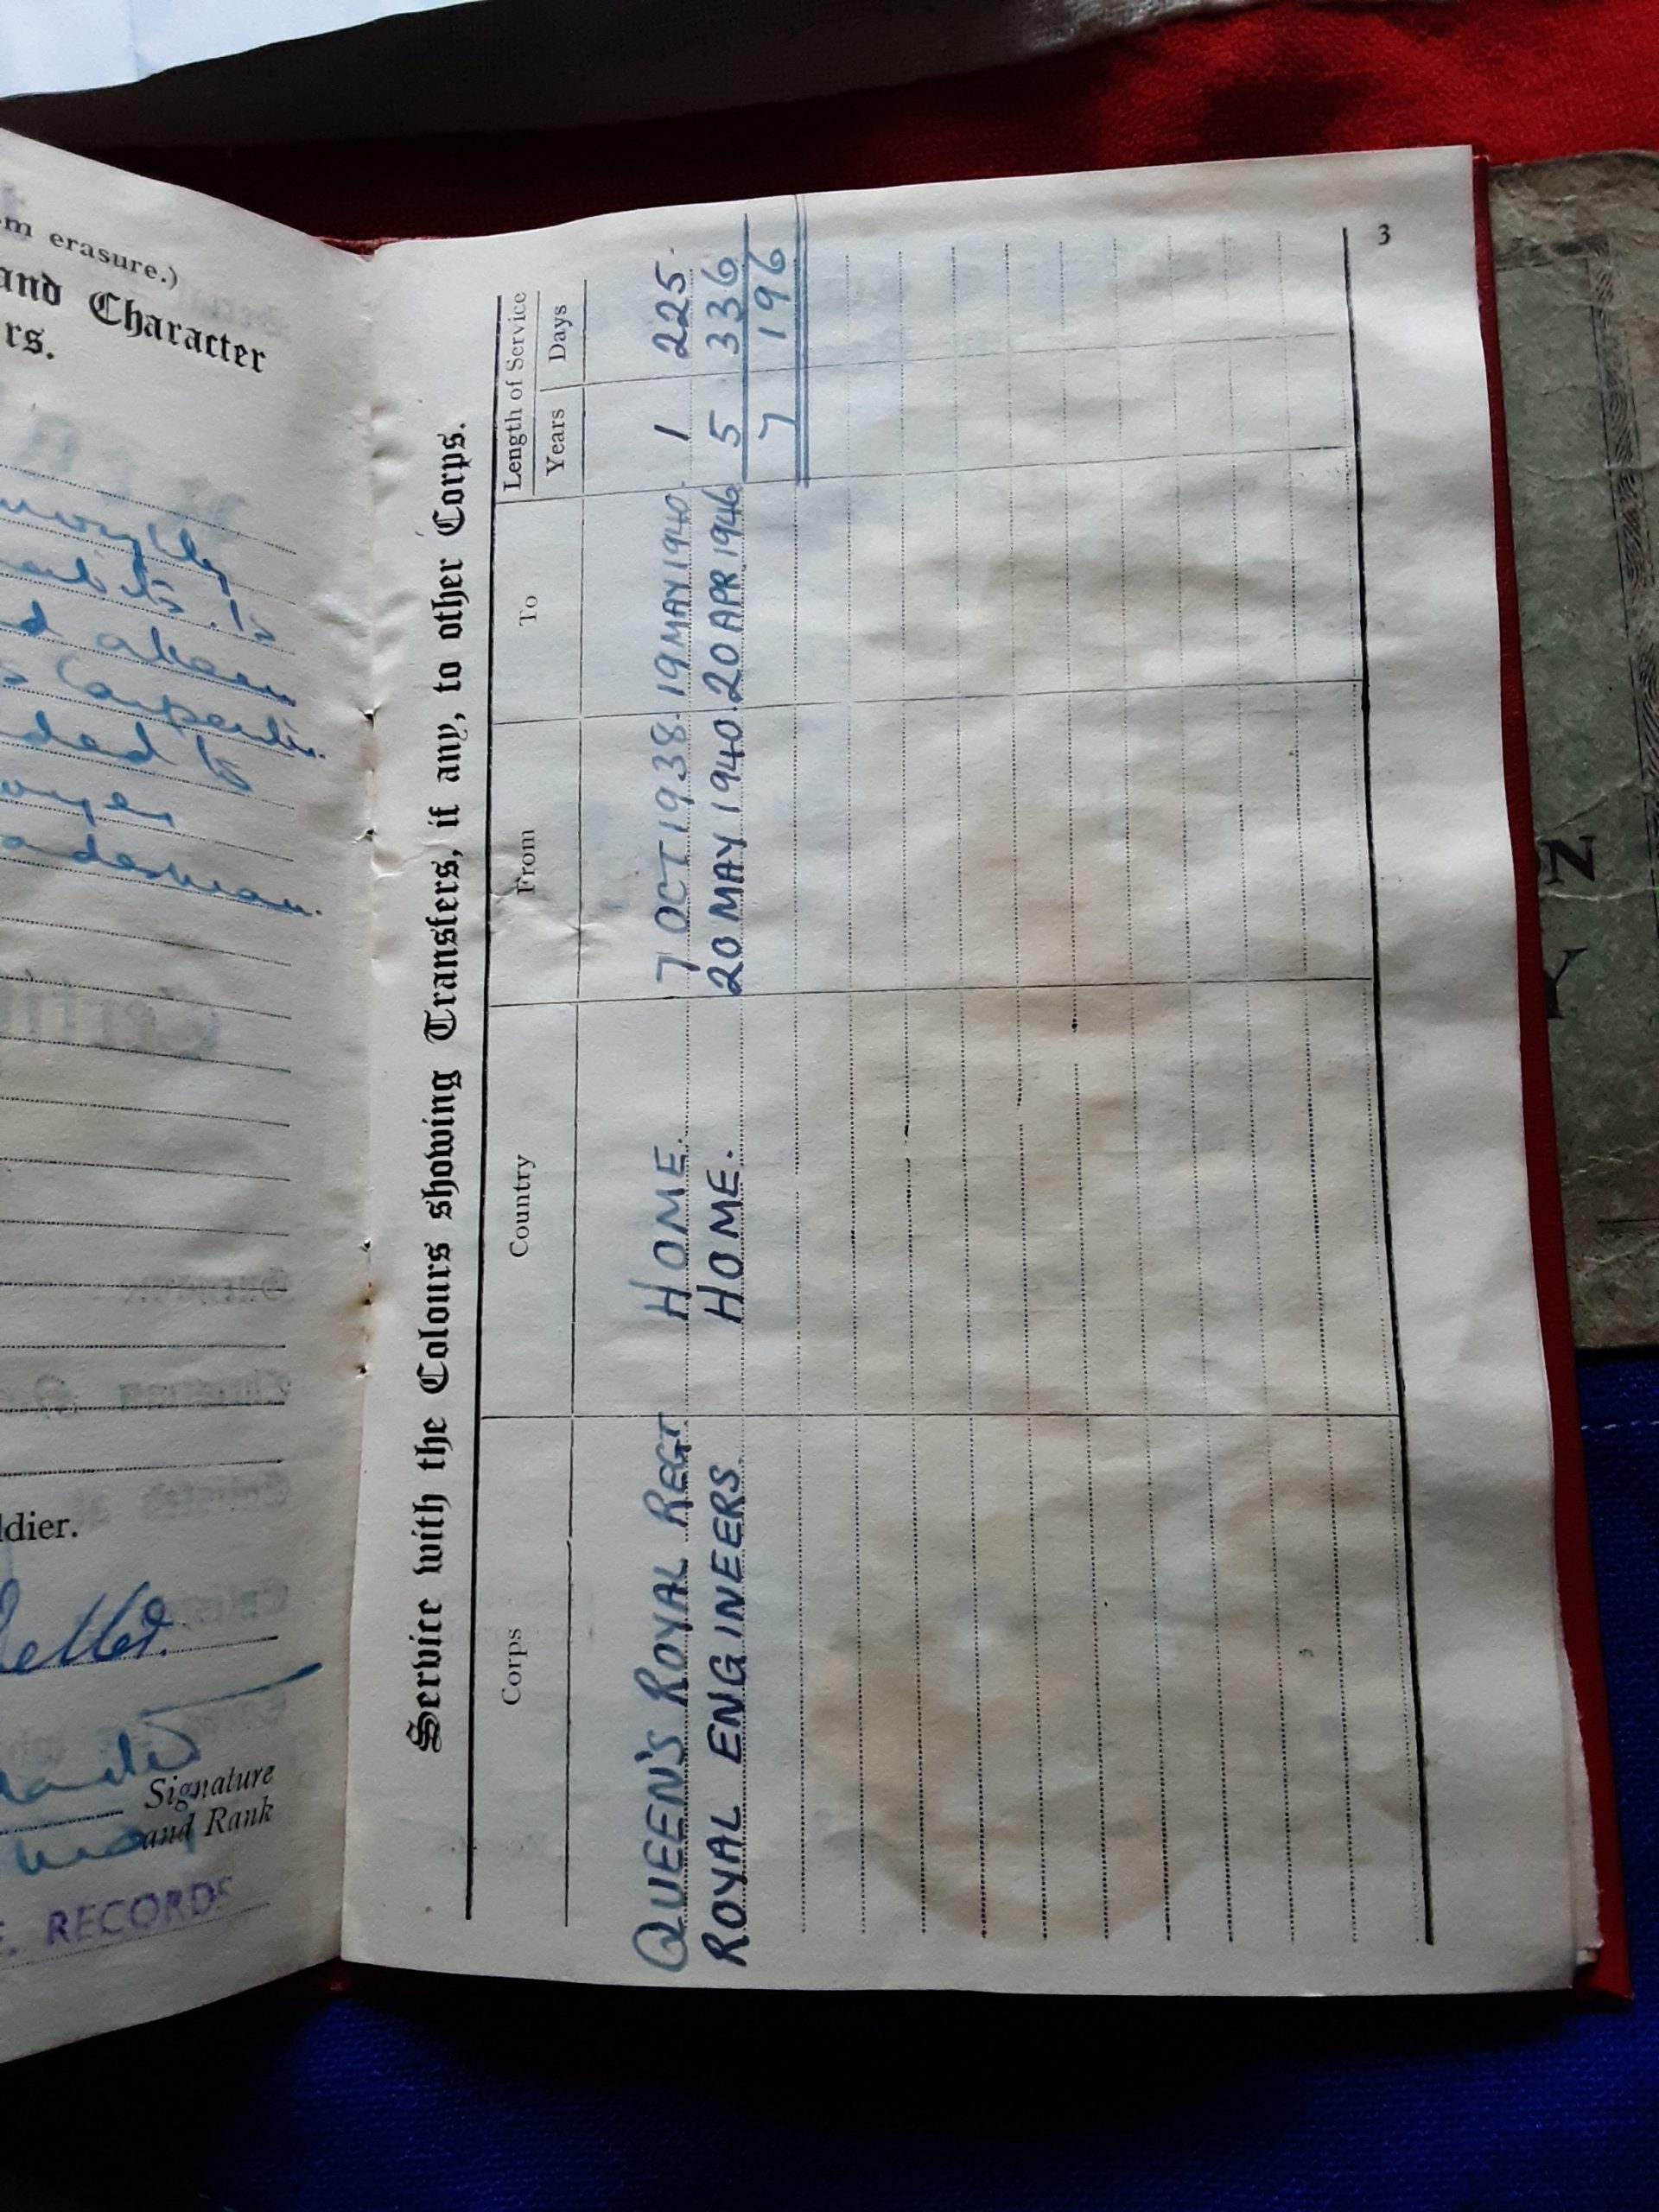 m erasure.)
and Character
rs.
d
Carpenter.
ded to
oyer
adesman.
ldier.
Signature
and Rank
RECORDS
Service with the Colours showing Transfers, if any, to other Corps.
Corps Country From To Length of Service
Years Days
QUEEN'S ROYAL REGT. HOME. 7 OCT 1938. 19 MAY 1940. 1 225.
ROYAL ENGINEERS HOME. 20 MAY 1940. 20 APR 1946 5 336
7 196
3
N
Y